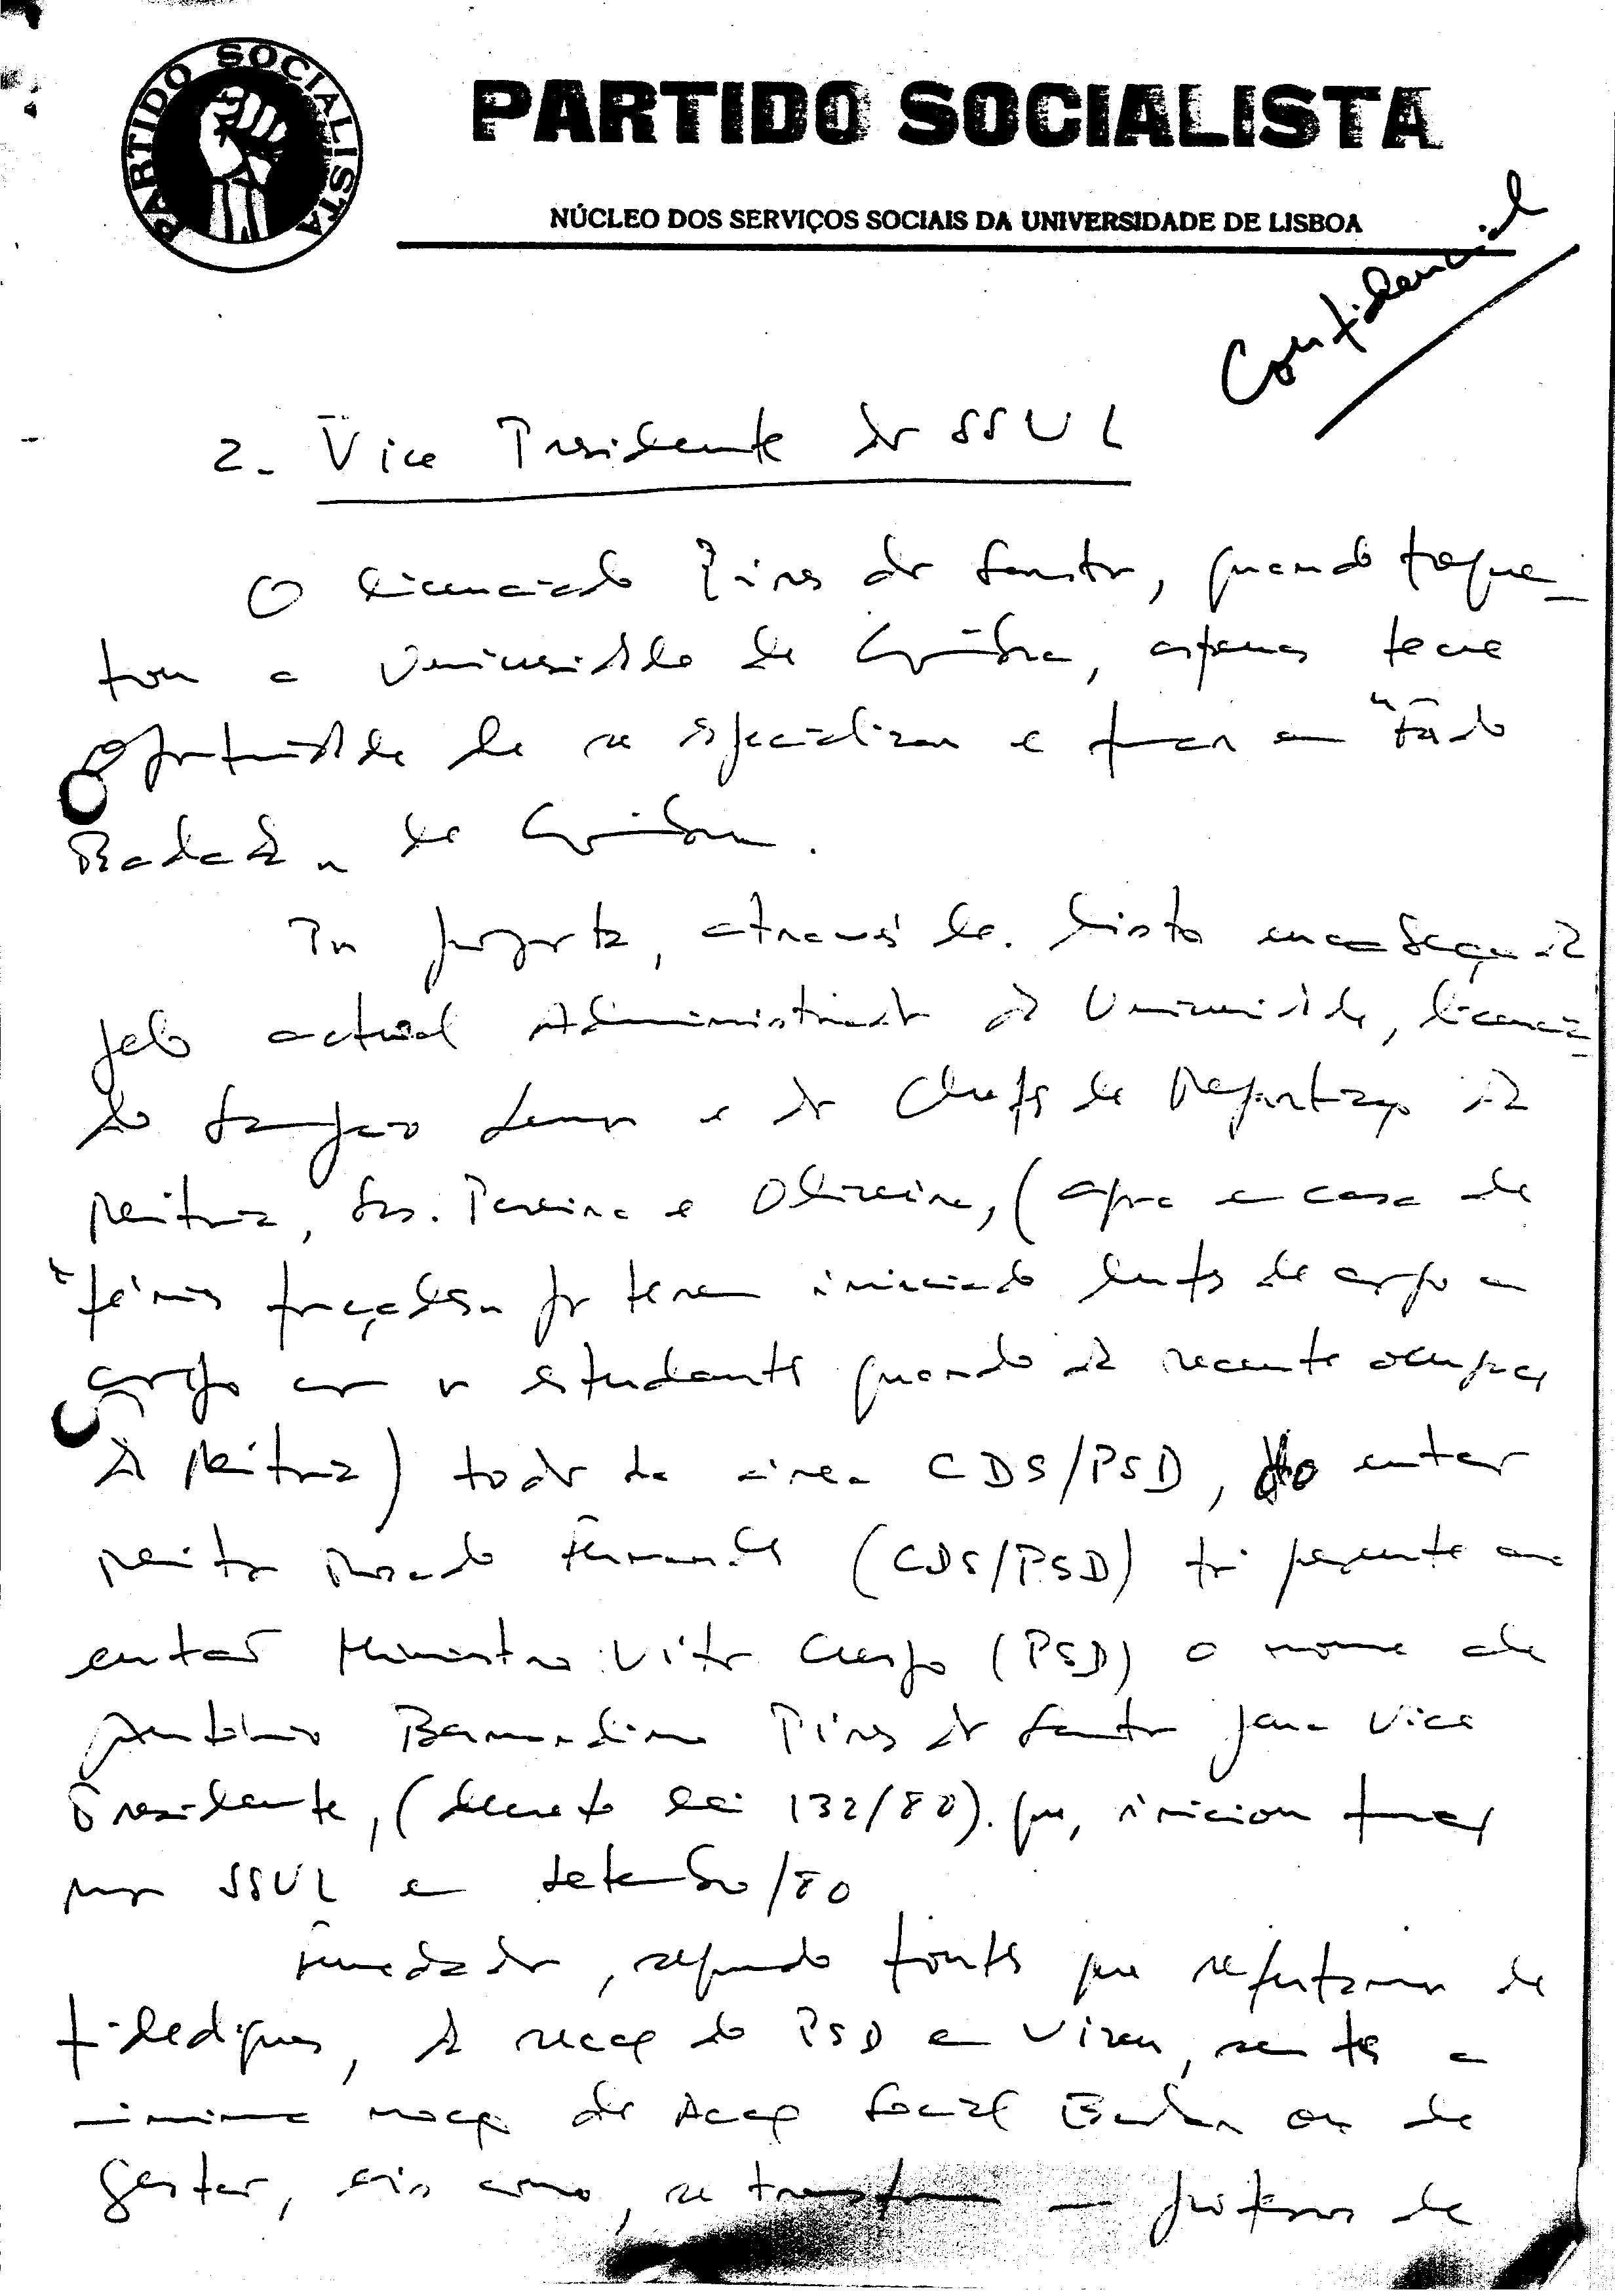 PARTIDO SOCIALISTA
PARTIDO SOCIALISTA
NÚCLEO DOS SERVIÇOS SOCIAIS DA UNIVERSIDADE DE LISBOA
Confidencial
2- Vice Presidente dos SSUL
O licenciado Pires dos Santos, quando freque_
tou a Universidade de Coimbra, apenas teve
oportunidade de se especializar e formar em "Fado
Balada" de Coimbra.
Por proposta, através de lista encabeçada
pelo actual Administrador da Universidade, licencia_
do Sampaio Lemos e dos Chefes de Repartição da
Reitoria, Srs. Pereira e Oliveira, (agora em casa de
"férias forçadas" por terem iniciado luta de corpo a
corpo com os estudantes quando da recente ocupação
da Reitoria) todos da área CDS/PSD, do então
Reitor Rosado Fernandes (CDS/PSD) foi presente ao
então Ministro Vitor Crespo (PSD) o nome de
António Bernardino Pires dos Santos para Vice
Presidente, (decreto lei 132/80). que, iniciou funções
nos SSUL em Setembro/80
Fundador, segundo fontes que reputamos de
fidedignas, da secção do PSD em Viseu, sem ter a
mínima noção de Acção Social Escolar ou de
gestão, eis como, se transforma um professor de